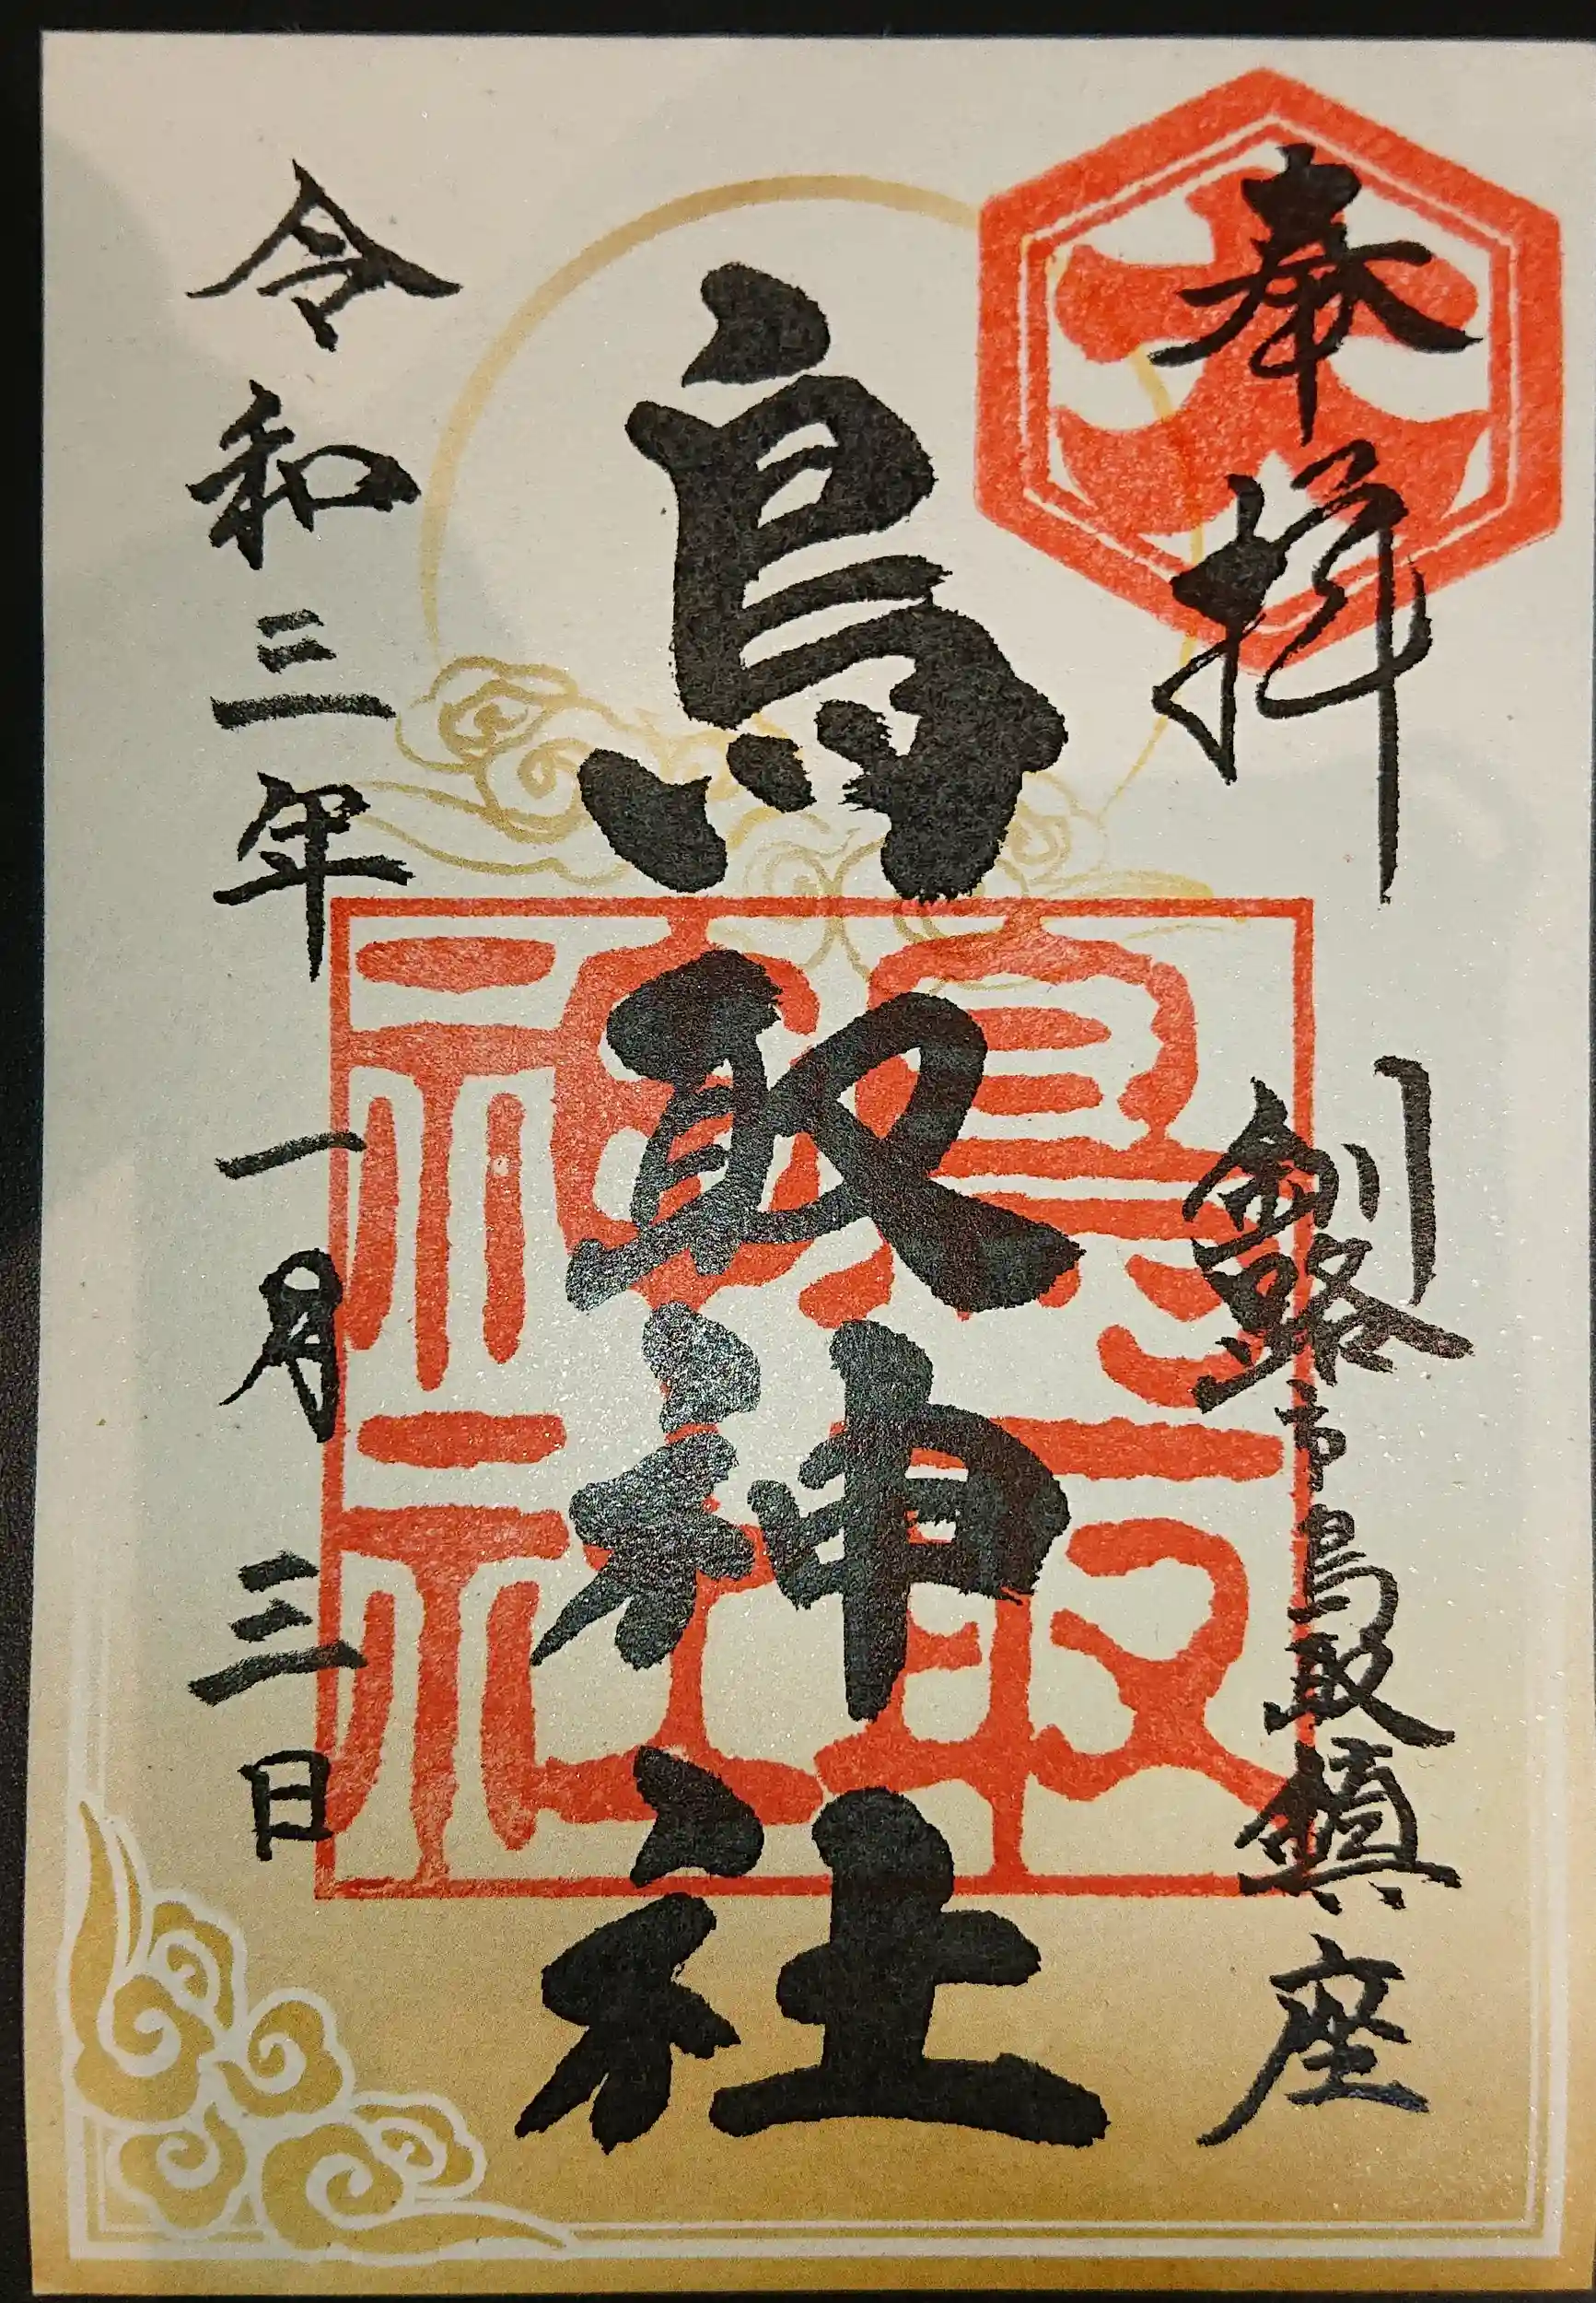 奉拝
釧路市鳥取鎮座
鳥取神社
鳥取神社
令和三年一月三日